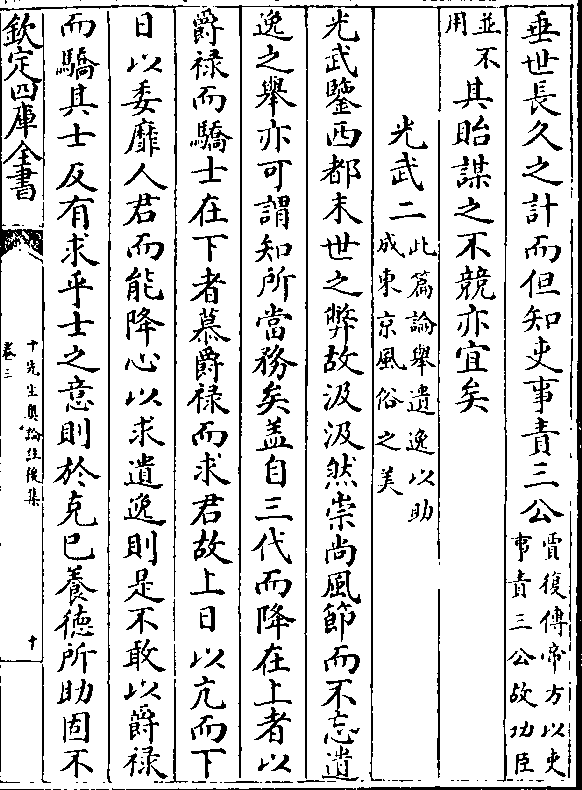 垂世長久之計而但知吏事責三公賈復傳帝方以吏事責三公故功臣
並不用其貽謀之不競亦宜矣
光武二此篇論舉遺逸以助成東京風俗之美
光武鑒西都末世之弊故汲汲然崇尚風節而不忘遺
逸之舉亦可謂知所當務矣盖自三代而降在上者以
爵禄而驕士在下者慕爵禄而求君故上日以亢而下
日以委靡人君而能降心以求遺逸則是不敢以爵禄
而驕其士反有求乎士之意則於克已養徳所助固不
欽定四庫全書
十先生奥論註後集
卷三
十